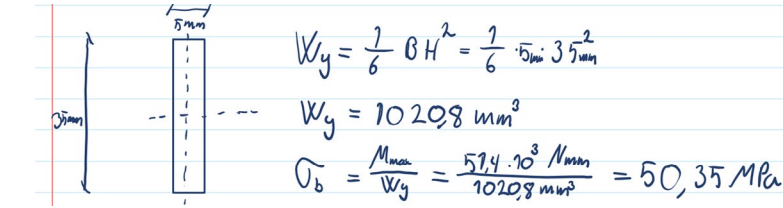 5mm
35mm
Wy = 1/6 BH² = 1/6 · 5mm · 35²mm
Wy = 1020,8 mm³
σb = Mmax/Wy = 51,4·10³ Nmm/1020,8 mm³ = 50,35 MPa